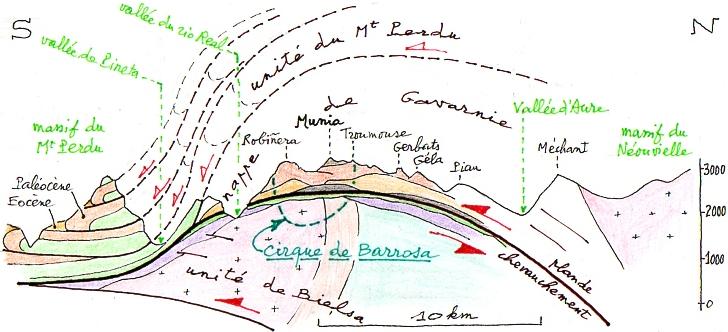 S
N
vallée du rio Real
vallée de Pineta
unité du Mt Perdu
massif du
Mt Perdu
Paléocène
Eocène
nappe
de
Gavarnie
Robiñera
Munia
Troumouse
Gerbats
Géla
Pian
Méchant
Vallée d'Aure
massif du
Néouvielle
3000
2000
1000
0
Cirque de Barrosa
unité de Bielsa
10 km
chevauchement